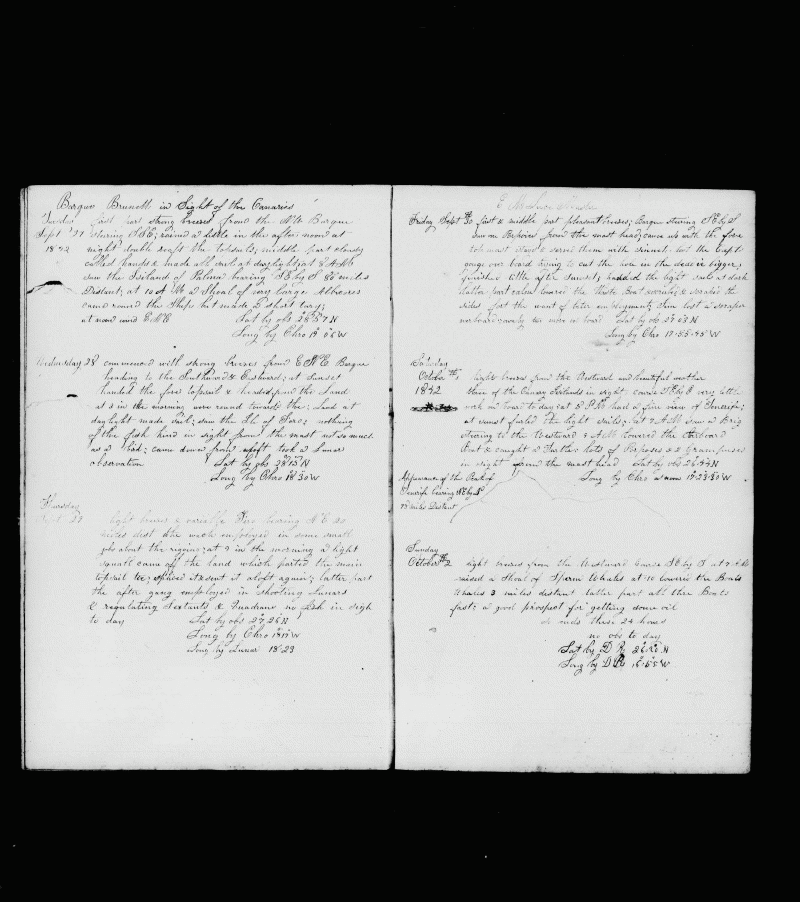 Barque Brunett in Sight of the Canaries
Tuesday first part strong breeses from the NE Barque
Sept 27 steering SSE; rained a little in the afternoon at
1842 night double reeft the topsails; middle part cloudy
called hands & made all sail at daylight; at 8 AM
saw the Island of Palma bearing SE by S 80 miles
Distant; at 10 A M a Shoal of very large Albicores
came round the Ship but made a short tarry;
at noon wind ENE Lat by obs 28 57 N
Long by Chro 18 06 W
Wednesday 28 commenced with strong breeses from ENE Barque
heading to the Southward & Eastward; at sunset
hauled the fore topsail & headed from the Land
at 3 in the morning wore round towards the Land at
daylight made sail; saw the Isl of Fero; nothing
of the fish kind in sight from the mast not so much
as a bird; came down from aloft took a Lunar
observation Lat by obs 28 13 N
Long by Chro 18 30 W
Thursday
Sept 29 light breeses & variable Fero bearing NE 20
miles dist the watch employed in some small
jobs about the rigging; at 9 in the morning a light
squall came off the land which parted the main
topsail tie; spliced it & sent it aloft again; latter part
the after gang employed in shooting Lunars
& regulating Sextants & Quadrans no fish in sigh
to day Lat by obs 27 26 N
Long by Chro 18 17 W
Long by Lunar 18 23
Friday Sept 30 first & middle part pleasant breeses; Barque steering SE by S
saw Porpoises from the mast head; came up with the fore
top mast stays & serves them with sinnet; lost the Capt
gouge over board trying to cut the hole in the dead bigger;
finished little after sunset; handed the light sails at dark
latter part calm lowered the Waste Boat & scraped the
sides for the want of better employment; Sam lost a scraper
overboard; only two more on board Lat by obs 27 03 N
Long by Chro 17-55-45 W
Saturday
October 1 light breeses from the Westward and beautiful weather
1842 three of the Canary Islands in sight; course SE by E very little
work on board to day; at 2 P M had a fine view of Tenerife;
at sunset furled the light sails; at 7 AM saw a Brig
steering to the Westward 9 AM lowered the Larboard
Boat & caught a Turtle; lots of Porpoises & Grampuses
in sight from the mast head Lat by obs 26 44 N
Appearance of the Peak of Long by Chro a noon 17-23-30 W
Tenerife bearing NE by N
miles Distant
Sunday
October 2 light breeses from the Westward course SE by S at 7 AM
raised a Shoal of Sperm Whales at 10 lowered the Boats
Whales 3 miles distant latter part all three Boats
fast; a good prospect for getting some oil
so ends these 24 hours
no obs to day
Lat by D R N
Long by D R W